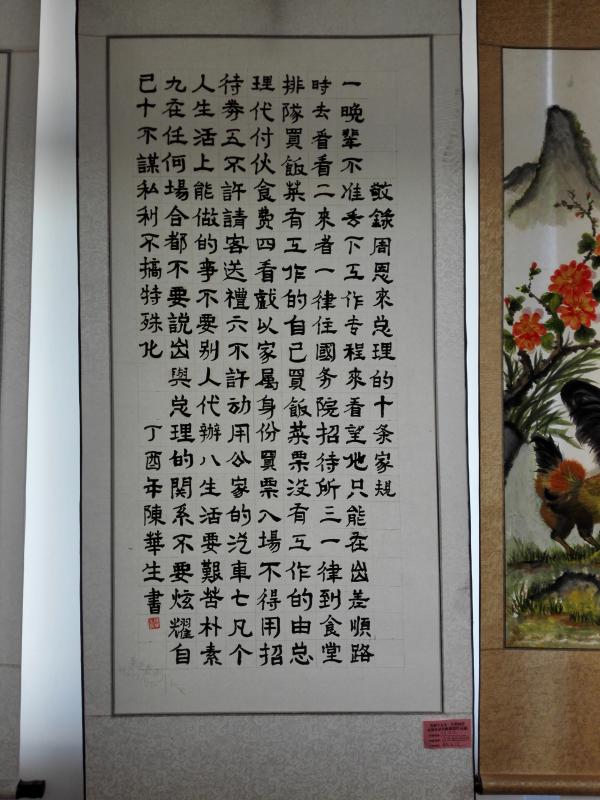 敬錄周恩來总理的十条家規
一晚輩不准丢下工作专程來看望他只能在出差順路
時去看看二來者一律住國务院招待所三一律到食堂
排隊買飯菜有工作的自己買飯菜票没有工作的由总
理代付伙食费四看戲以家属身份買票入場不得用招
待券五不許請客送禮六不許动用公家的汽車七凡个
人生活上能做的事不要别人代辦八生活要艱苦朴素
九在任何場合都不要説出與总理的関系不要炫耀自
己十不謀私利不搞特殊化
丁酉年陳華生書